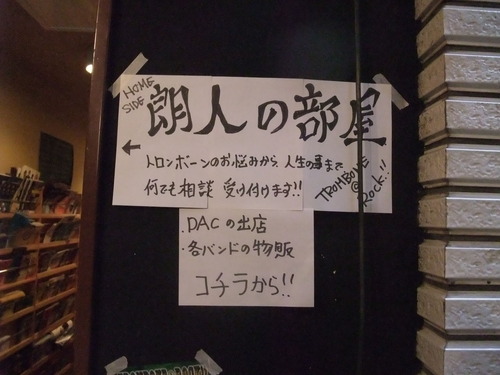 HOME
SIDE
朗人の部屋
←
トロンボーンのお悩みから、人生の事まで
何でも相談 受け付けます!!
TROMBONE
@
Rock!!
.DACの出店
・各バンドの物販
コチラから!!